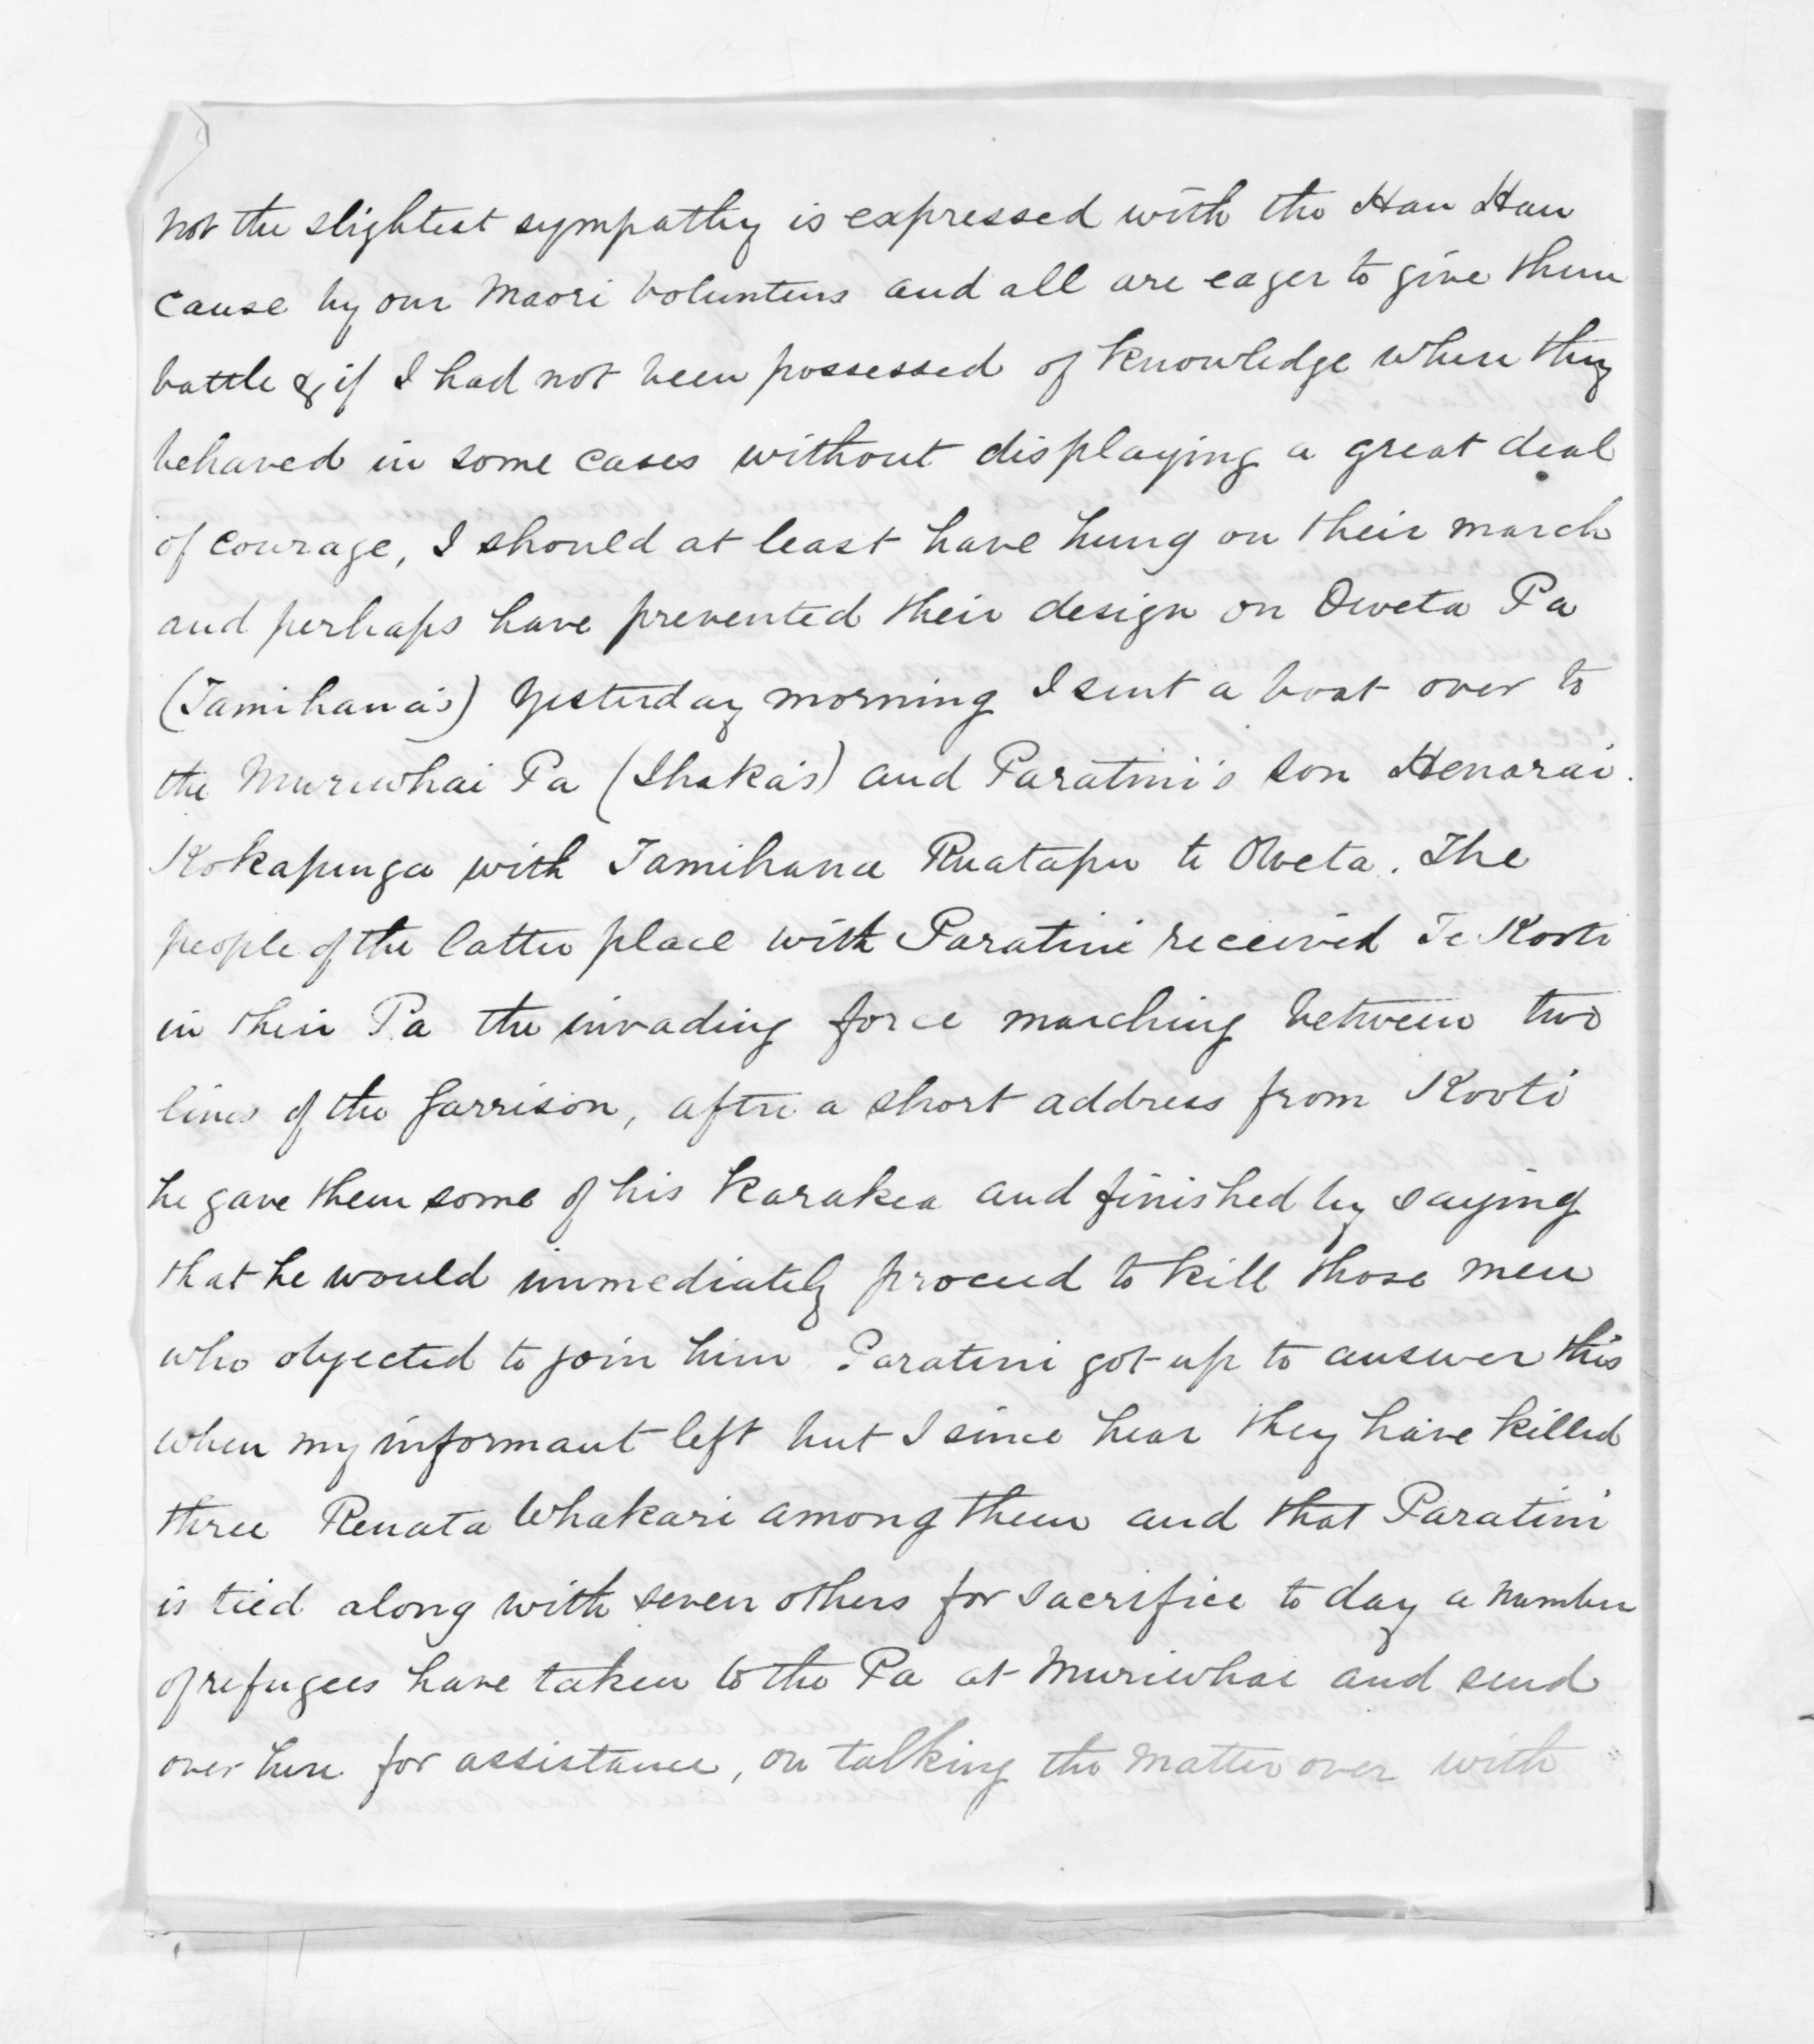 not the slightest sympathy is expressed with the Hau Hau
cause by our Maori Volunteers and all are eager to give them
battle & if I had not been possessed of knowledge where they
behaved in some cases without displaying a great deal
of courage, I should at least have hung on their march
and perhaps have prevented their design on Oweta Pa
(Tamihana's) Yesterday morning I sent a boat over to
the Muriwhai Pa (Ihaka's) and Paratini's son Henarai.
Kokapunga with Tamihana Ruatapu to Oweta. The
people of the latter place with Paratini received Te Kooti
in their Pa the invading force marching between two
lines of the Garrison, after a short address from Kooti
he gave them some of his Karakea and finished by saying
that he would immediately proceed to kill those men
who objected to join him Paratini got up to answer this
when my informant left but I since hear they have killed
three Renata Whakari among them and that Paratini
is tied along with seven others for sacrifice to day a number
of refugees have taken to the Pa at Muriwhai and send
over here for assistance, on talking the matter over with